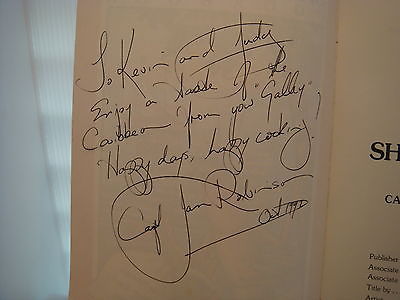 To Kevin and Judy
Enjoy a taste of the
Caribbean from your "Galley",
"Happy days, happy cooking!
Capt Jan Robinson
Oct 199
SH
CA
Publisher
Associate
Associate
Title by . .
Artist